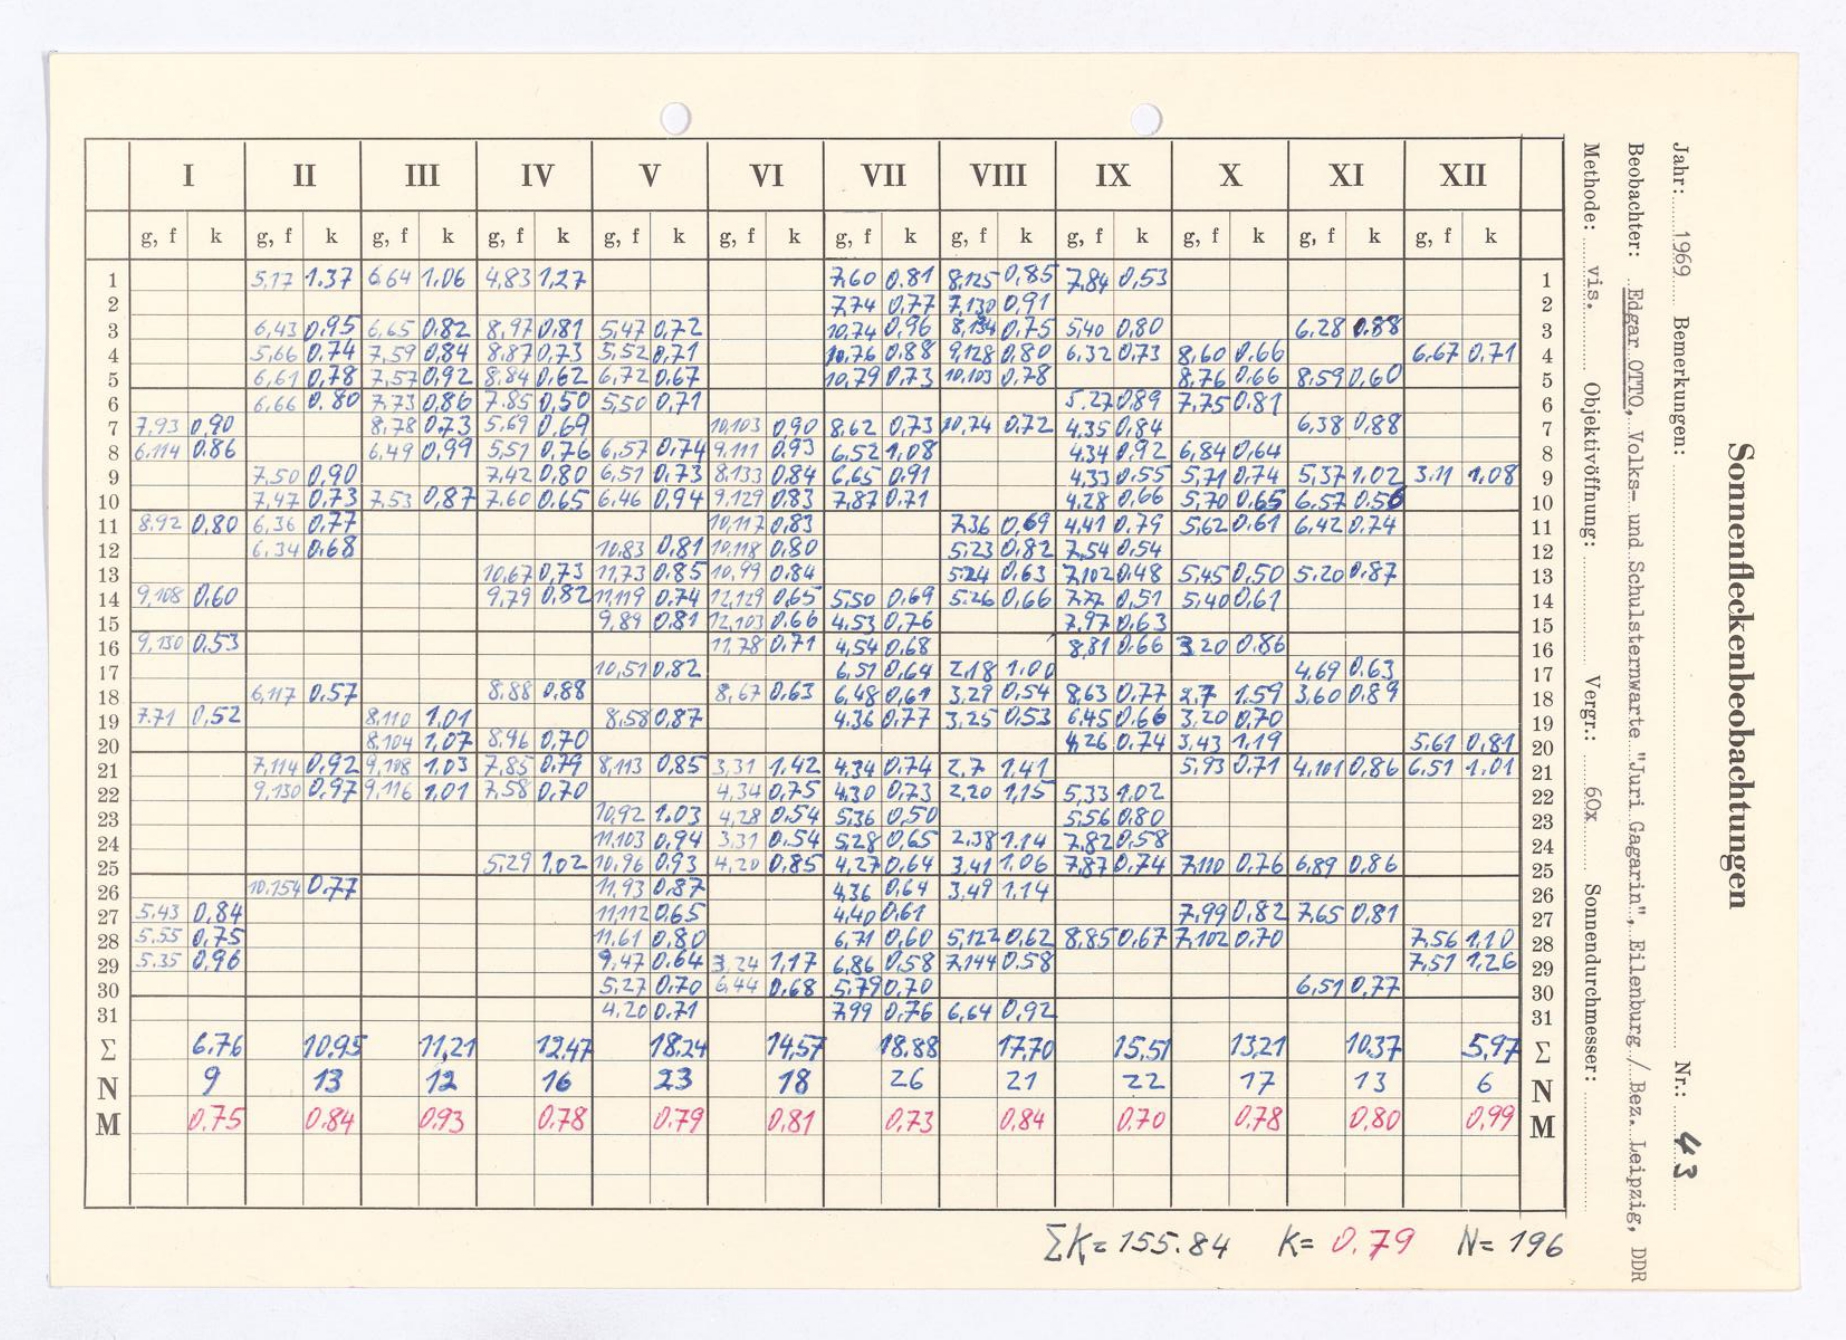 Sonnenfleckenbeobachtungen
Jahr: 1969 Bemerkungen: Nr.: 43
Beobachter: Edgar OTTO, Volks- und Schulsternwarte "Juri Gagarin", Eilenburg / Bez. Leipzig, DDR
Methode: vis. Objektivöffnung: Vergr.: 60x Sonnendurchmesser:
I II III IV V VI VII VIII IX X XI XII
g, f k g, f k g, f k g, f k g, f k g, f k g, f k g, f k g, f k g, f k g, f k g, f k
1 5,17 1,37 6,64 1,06 4,83 1,27 7,60 0,81 8,125 0,85 7,84 0,53 1
2 7,74 0,77 7,130 0,91 2
3 6,43 0,95 6,65 0,82 8,97 0,81 5,47 0,72 10,74 0,96 8,134 0,75 5,40 0,80 6,28 0,88 3
4 5,66 0,74 7,59 0,84 8,87 0,73 5,52 0,71 10,76 0,88 9,128 0,80 6,32 0,73 8,60 0,66 6,67 0,71 4
5 6,61 0,78 7,57 0,92 8,84 0,62 6,72 0,67 10,79 0,73 10,103 0,78 8,76 0,66 8,59 0,60 5
6 6,66 0,80 7,73 0,86 7,85 0,50 5,50 0,71 5,27 0,89 7,75 0,81 6
7 7,93 0,90 8,78 0,73 5,69 0,69 10,103 0,90 8,62 0,73 10,74 0,72 4,35 0,84 6,38 0,88 7
8 6,114 0,86 6,49 0,99 5,51 0,76 6,57 0,74 9,111 0,93 6,52 1,08 4,34 0,92 6,84 0,64 8
9 7,50 0,90 7,42 0,80 6,51 0,73 8,133 0,84 6,65 0,91 4,33 0,55 5,71 0,74 5,37 1,02 3,11 1,08 9
10 7,47 0,73 7,53 0,87 7,60 0,65 6,46 0,94 9,129 0,83 7,87 0,71 4,28 0,66 5,70 0,65 6,57 0,56 10
11 8,92 0,80 6,36 0,77 10,117 0,83 7,36 0,69 4,41 0,79 5,62 0,61 6,42 0,74 11
12 6,34 0,68 10,83 0,81 10,118 0,80 5,23 0,82 7,54 0,54 12
13 10,67 0,73 11,73 0,85 10,99 0,84 5,24 0,63 7,102 0,48 5,45 0,50 5,20 0,87 13
14 9,108 0,60 9,79 0,82 11,119 0,74 12,129 0,65 5,50 0,69 5,26 0,66 7,77 0,51 5,40 0,61 14
15 9,89 0,81 12,103 0,66 4,53 0,76 7,97 0,63 15
16 9,130 0,53 11,78 0,71 4,54 0,68 8,81 0,66 3,20 0,86 16
17 10,51 0,82 6,51 0,64 2,18 1,00 4,69 0,63 17
18 6,117 0,57 8,88 0,88 8,67 0,63 6,48 0,61 3,29 0,54 8,63 0,77 2,7 1,59 3,60 0,89 18
19 7,71 0,52 8,110 1,01 8,58 0,87 4,36 0,77 3,25 0,53 6,45 0,66 3,20 0,70 19
20 8,104 1,07 8,96 0,70 4,26 0,74 3,43 1,19 5,61 0,81 20
21 7,114 0,92 9,108 1,03 7,85 0,79 8,113 0,85 3,31 1,42 4,34 0,74 2,7 1,41 5,93 0,71 4,101 0,86 6,51 1,01 21
22 9,130 0,97 9,116 1,01 7,58 0,70 4,34 0,75 4,30 0,73 2,20 1,15 5,33 1,02 22
23 10,92 1,03 4,28 0,54 5,36 0,50 5,56 0,80 23
24 11,103 0,94 3,31 0,54 5,28 0,65 2,38 1,14 7,82 0,58 24
25 5,29 1,02 10,96 0,93 4,20 0,85 4,27 0,64 3,41 1,06 7,87 0,74 7,110 0,76 6,89 0,86 25
26 10,154 0,77 11,93 0,87 4,36 0,64 3,49 1,14 26
27 5,43 0,84 11,112 0,65 4,40 0,61 7,99 0,82 7,65 0,81 27
28 5,55 0,75 11,61 0,80 6,71 0,60 5,122 0,62 8,85 0,67 7,102 0,70 7,56 1,10 28
29 5,35 0,96 9,47 0,64 3,24 1,17 6,86 0,58 7,144 0,58 7,51 1,26 29
30 5,27 0,70 6,44 0,68 5,79 0,70 6,51 0,77 30
31 4,20 0,71 7,99 0,76 6,64 0,92 31
Σ 6,76 10,95 11,21 12,47 18,24 14,57 18,88 17,70 15,51 13,21 10,37 5,97 Σ
N 9 13 12 16 23 18 26 21 22 17 13 6 N
M 0,75 0,84 0,93 0,78 0,79 0,81 0,73 0,84 0,70 0,78 0,80 0,99 M
ΣK= 155.84 K= 0.79 N= 196